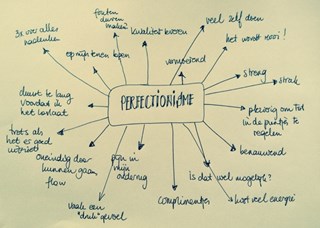 fouten
durven
maken
kwaliteit leveren
veel zelf doen
3x over alles
nadenken
op mijn tenen lopen
vermoeiend
het wordt mooi!
streng
strak
duurt te lang
voordat ik
het loslaat
PERFECTIONISME
plezierig om tot
in de puntjes te
regelen
trots als
het er goed
uitziet
oneindig door
kunnen gaan
flow
pijn in
mijn
onderrug
benauwend
Is dat wel mogelijk?
vaak een
"druk" gevoel
complimentjes
kost veel energie